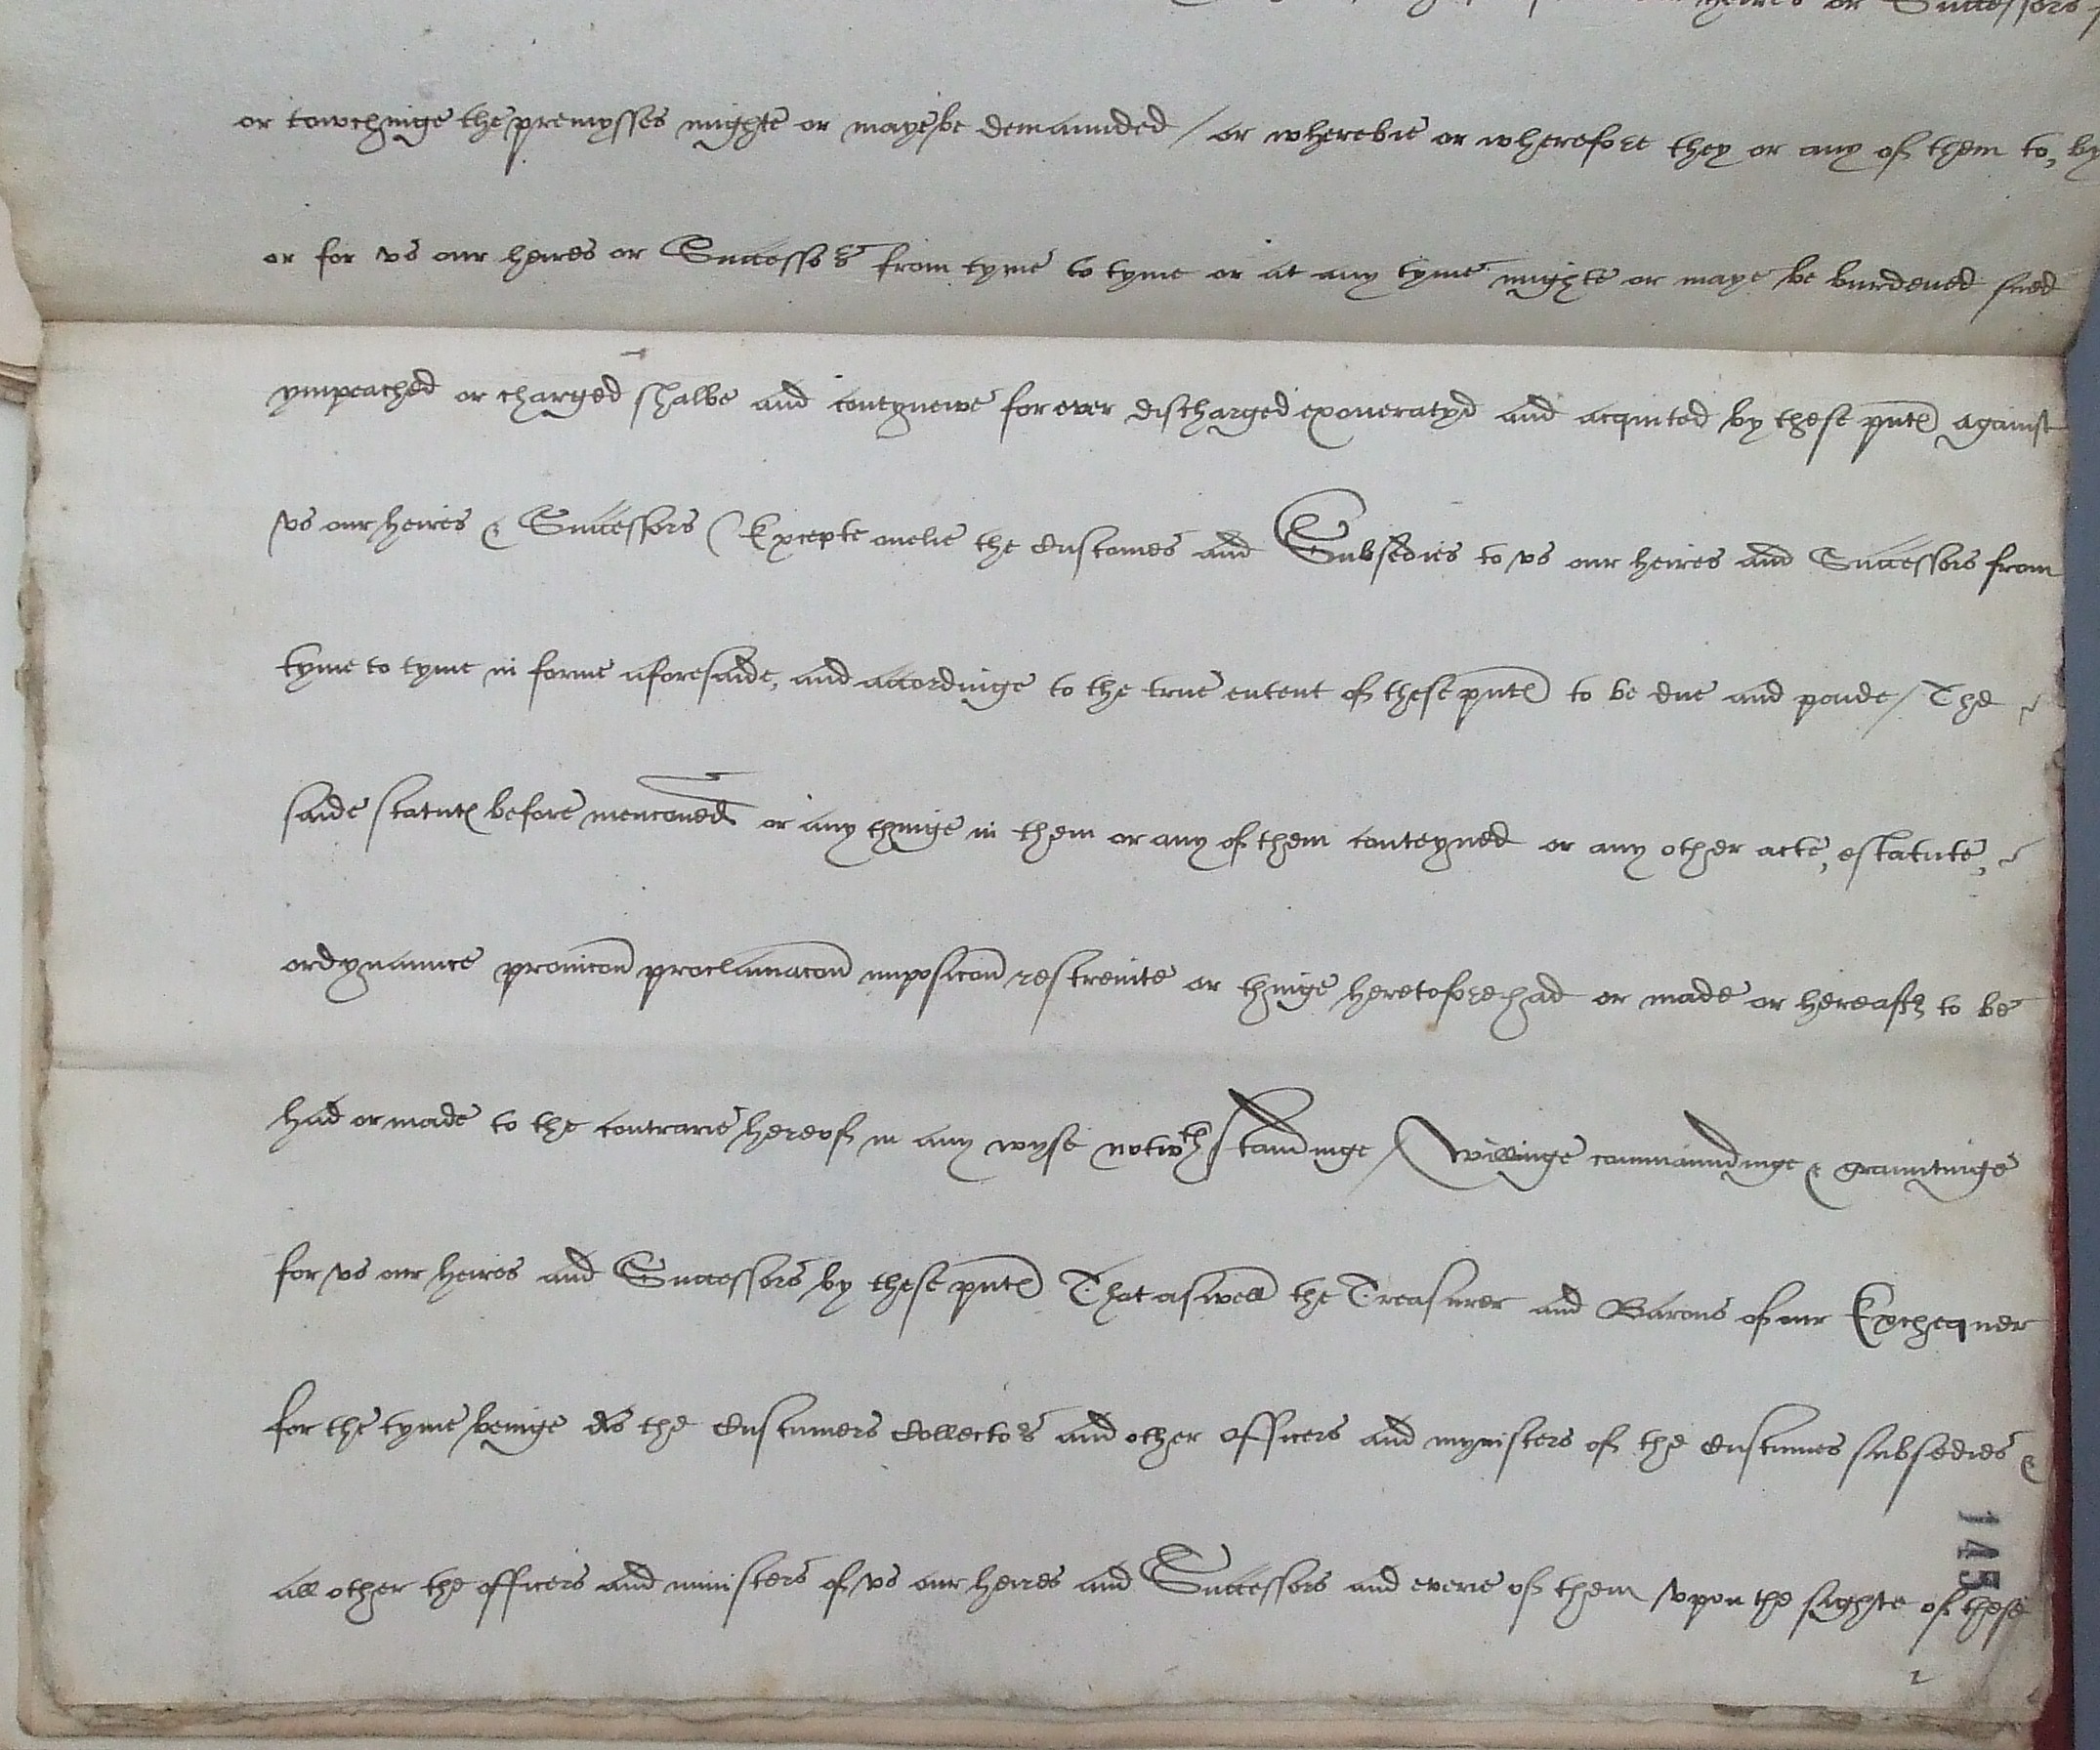 heires or Successors
or towchinge the premysses mighte or maye be demaunded / or wherebie or wherefore they or any of them to, by
or for vs our heires or Successors from tyme to tyme or at any tyme mighte or maye be burdened sued
ympeached or charged shalbe and contynewe for ever discharged exoneratyd and acquited by these pntℯ against
vs our heires & Successors ( Excepte onelie the Customes and Subsedies to vs our heires and Successors from
tyme to tyme in forme aforesaide, and accordinge to the true entent of these pntℯ to be due and paide / The
saide statutℯ before menconed or any thinge in them or any of them conteyned or any other acte, estatute,
ordynaunce provicon proclamacon imposicon restreinte or thinge heretofore had or made or hereafter to be
had or made to the contrarie hereof in any wyse notwthstandinge / Willinge commaundinge & grauntinge
for vs our heires and Successors by these pntℯ That aswell the Treasurer and Barons of our Exchequer
for the tyme beinge As the Custumers Collectors and other officers and mynisters of the Custumes subsedies &
all other the officers and ministers of vs our heires and Successors and everie of them vpon the sighte of these
145